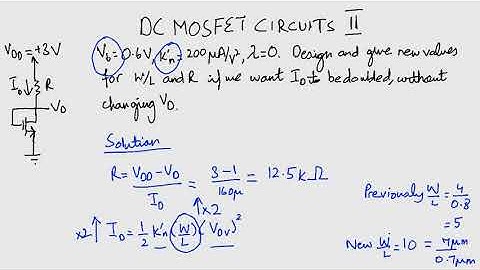 DC MOSFET CIRCUITS II
V_DD = +3V
I_D ↓ R
V_D
V_t = 0.6V, k'_n = 200μA/V², λ=0. Design and give new values
for W/L and R if we want I_D to be doubled, without
changing V_D.
Solution
R = (V_DD − V_D) / I_D = (3 − 1) / 160μ = 12.5k Ω
↑×2
×2↑ I_D = 1/2 k'_n (W/L) (V_OV)²
Previously W/L = 4/0.8
= 5
New W/L = 10 = 7μm/0.7μm